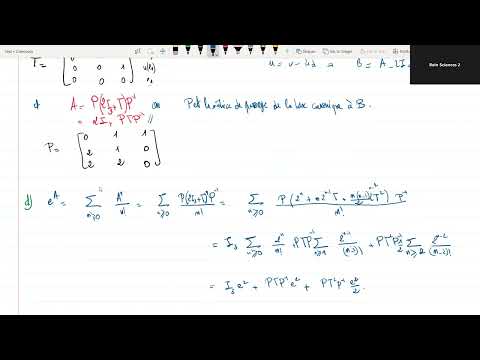 Bloin Sciences 2
T = [ 0 1 0
0 0 1
0 0 0 ]
u = v - 2id → B = A - 2I
c) A = P(2I₃+T)P⁻¹ où P est la matrice de passage de la base canonique à B.
= 2I₃ + PTP⁻¹ //
P = [ 0 1 1
2 1 0
2 2 0 ]
d) e^A = Σ_{n≥0} Aⁿ/n! = Σ_{n≥0} P(2I₃+T)ⁿP⁻¹/n! = Σ_{n≥0} P(2ⁿ + n2ⁿ⁻¹T + n(n-1)/2 2ⁿ⁻²T²)P⁻¹/n!
= I₃ Σ_{n≥0} 2ⁿ/n! + PTP⁻¹ Σ_{n≥1} 2ⁿ⁻¹/(n-1)! + PT²P⁻¹ 1/2 Σ_{n≥2} 2ⁿ⁻²/(n-2)!
= I₃e² + PTP⁻¹e² + PT²P⁻¹ e²/2.